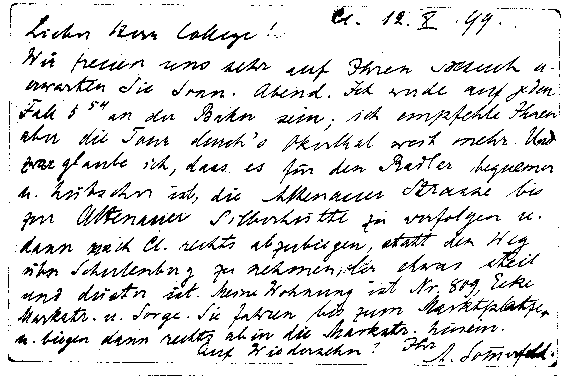 Cl. 12. X. 99.
Lieber Herr College!
Wir freuen uns sehr auf Ihren Besuch u.
erwarten Sie Sonn. Abend. Ich werde auf jeden
Fall 5 54 an der Bahn sein; ich empfehle Ihnen
aber die Tour durch's Okerthal weit mehr. Und
zwar glaube ich, dass es für den Radler bequemer
u. hübscher ist, die Altenauer Strasse bis
zur Altenauer Silberhütte zu verfolgen u.
dann nach Cl. rechts abzubiegen, statt den Weg
über Schulenberg zu nehmen, der etwas steil
und ist. Meine Wohnung ist Nr. 809, Ecke
Marktstr. u. Sorge. Sie fahren bis zum Marktplatze,
u. biegen dann rechts ab in die Marktstr. hinein.
Auf Wiedersehn! Ihr
A. Sommerfeld.